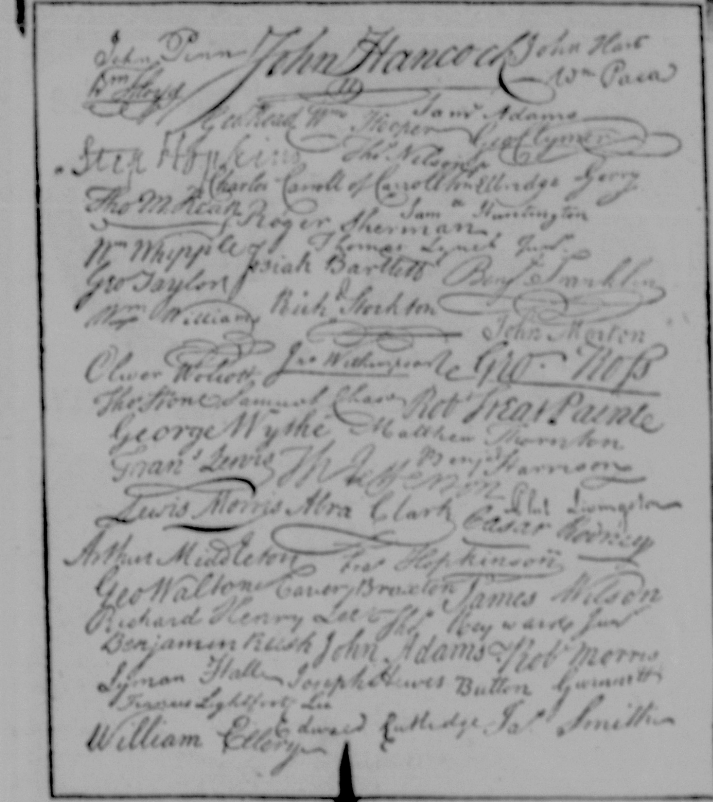 John Penn John Hancock John Hart
Wm Floyd Wm Paca
Geo Read Wm Hooper Saml Adams
Geo Clymer
Step Hopkins Thos Nelson jr
Charles Carroll of Carrollton Elbridge Gerry
Tho M:Kean Roger Sherman Saml Huntington
Wm Whipple Thomas Lynch Junr
Josiah Bartlett Benj Franklin
Geo Taylor
Wm Williams Richd Stockton
John Morton
Oliver Wolcott Jno Witherspoon Geo. Ross
Thos Stone Samuel Chase Robt Treat Paine
George Wythe Matthew Thornton
Frans Lewis Th Jefferson Benj Harrison
Lewis Morris Abra Clark Phil Livingston
Cæsar Rodney
Arthur Middleton Fras Hopkinson
Geo Walton Carter Braxton James Wilson
Richard Henry Lee Thos Heyward Junr
Benjamin Rush John Adams Robt Morris
Lyman Hall Joseph Hewes Button Gwinnett
Francis Lightfoot Lee
William Ellery Edward Rutledge Jas Smith